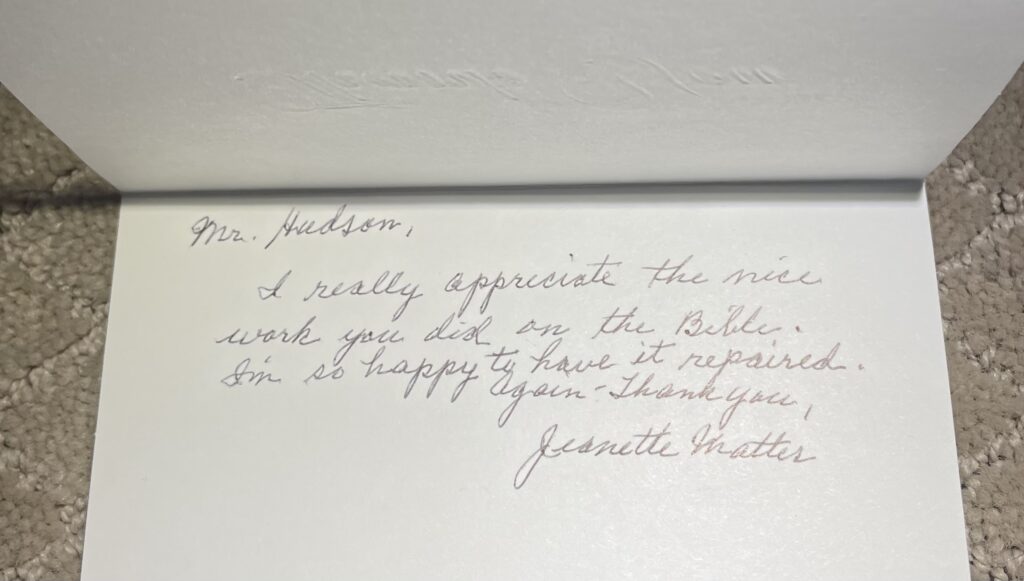 Mr. Hudson,
I really appreciate the nice
work you did on the Bible.
I'm so happy to have it repaired.
Again - Thank you,
Jeanette Matter